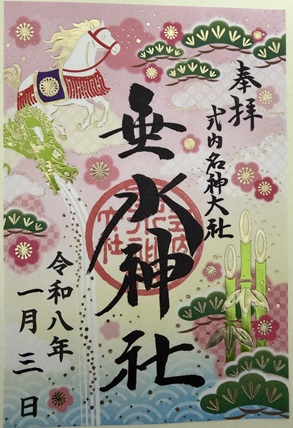 奉拝
式内名神大社
垂水神社
令和八年
一月三日